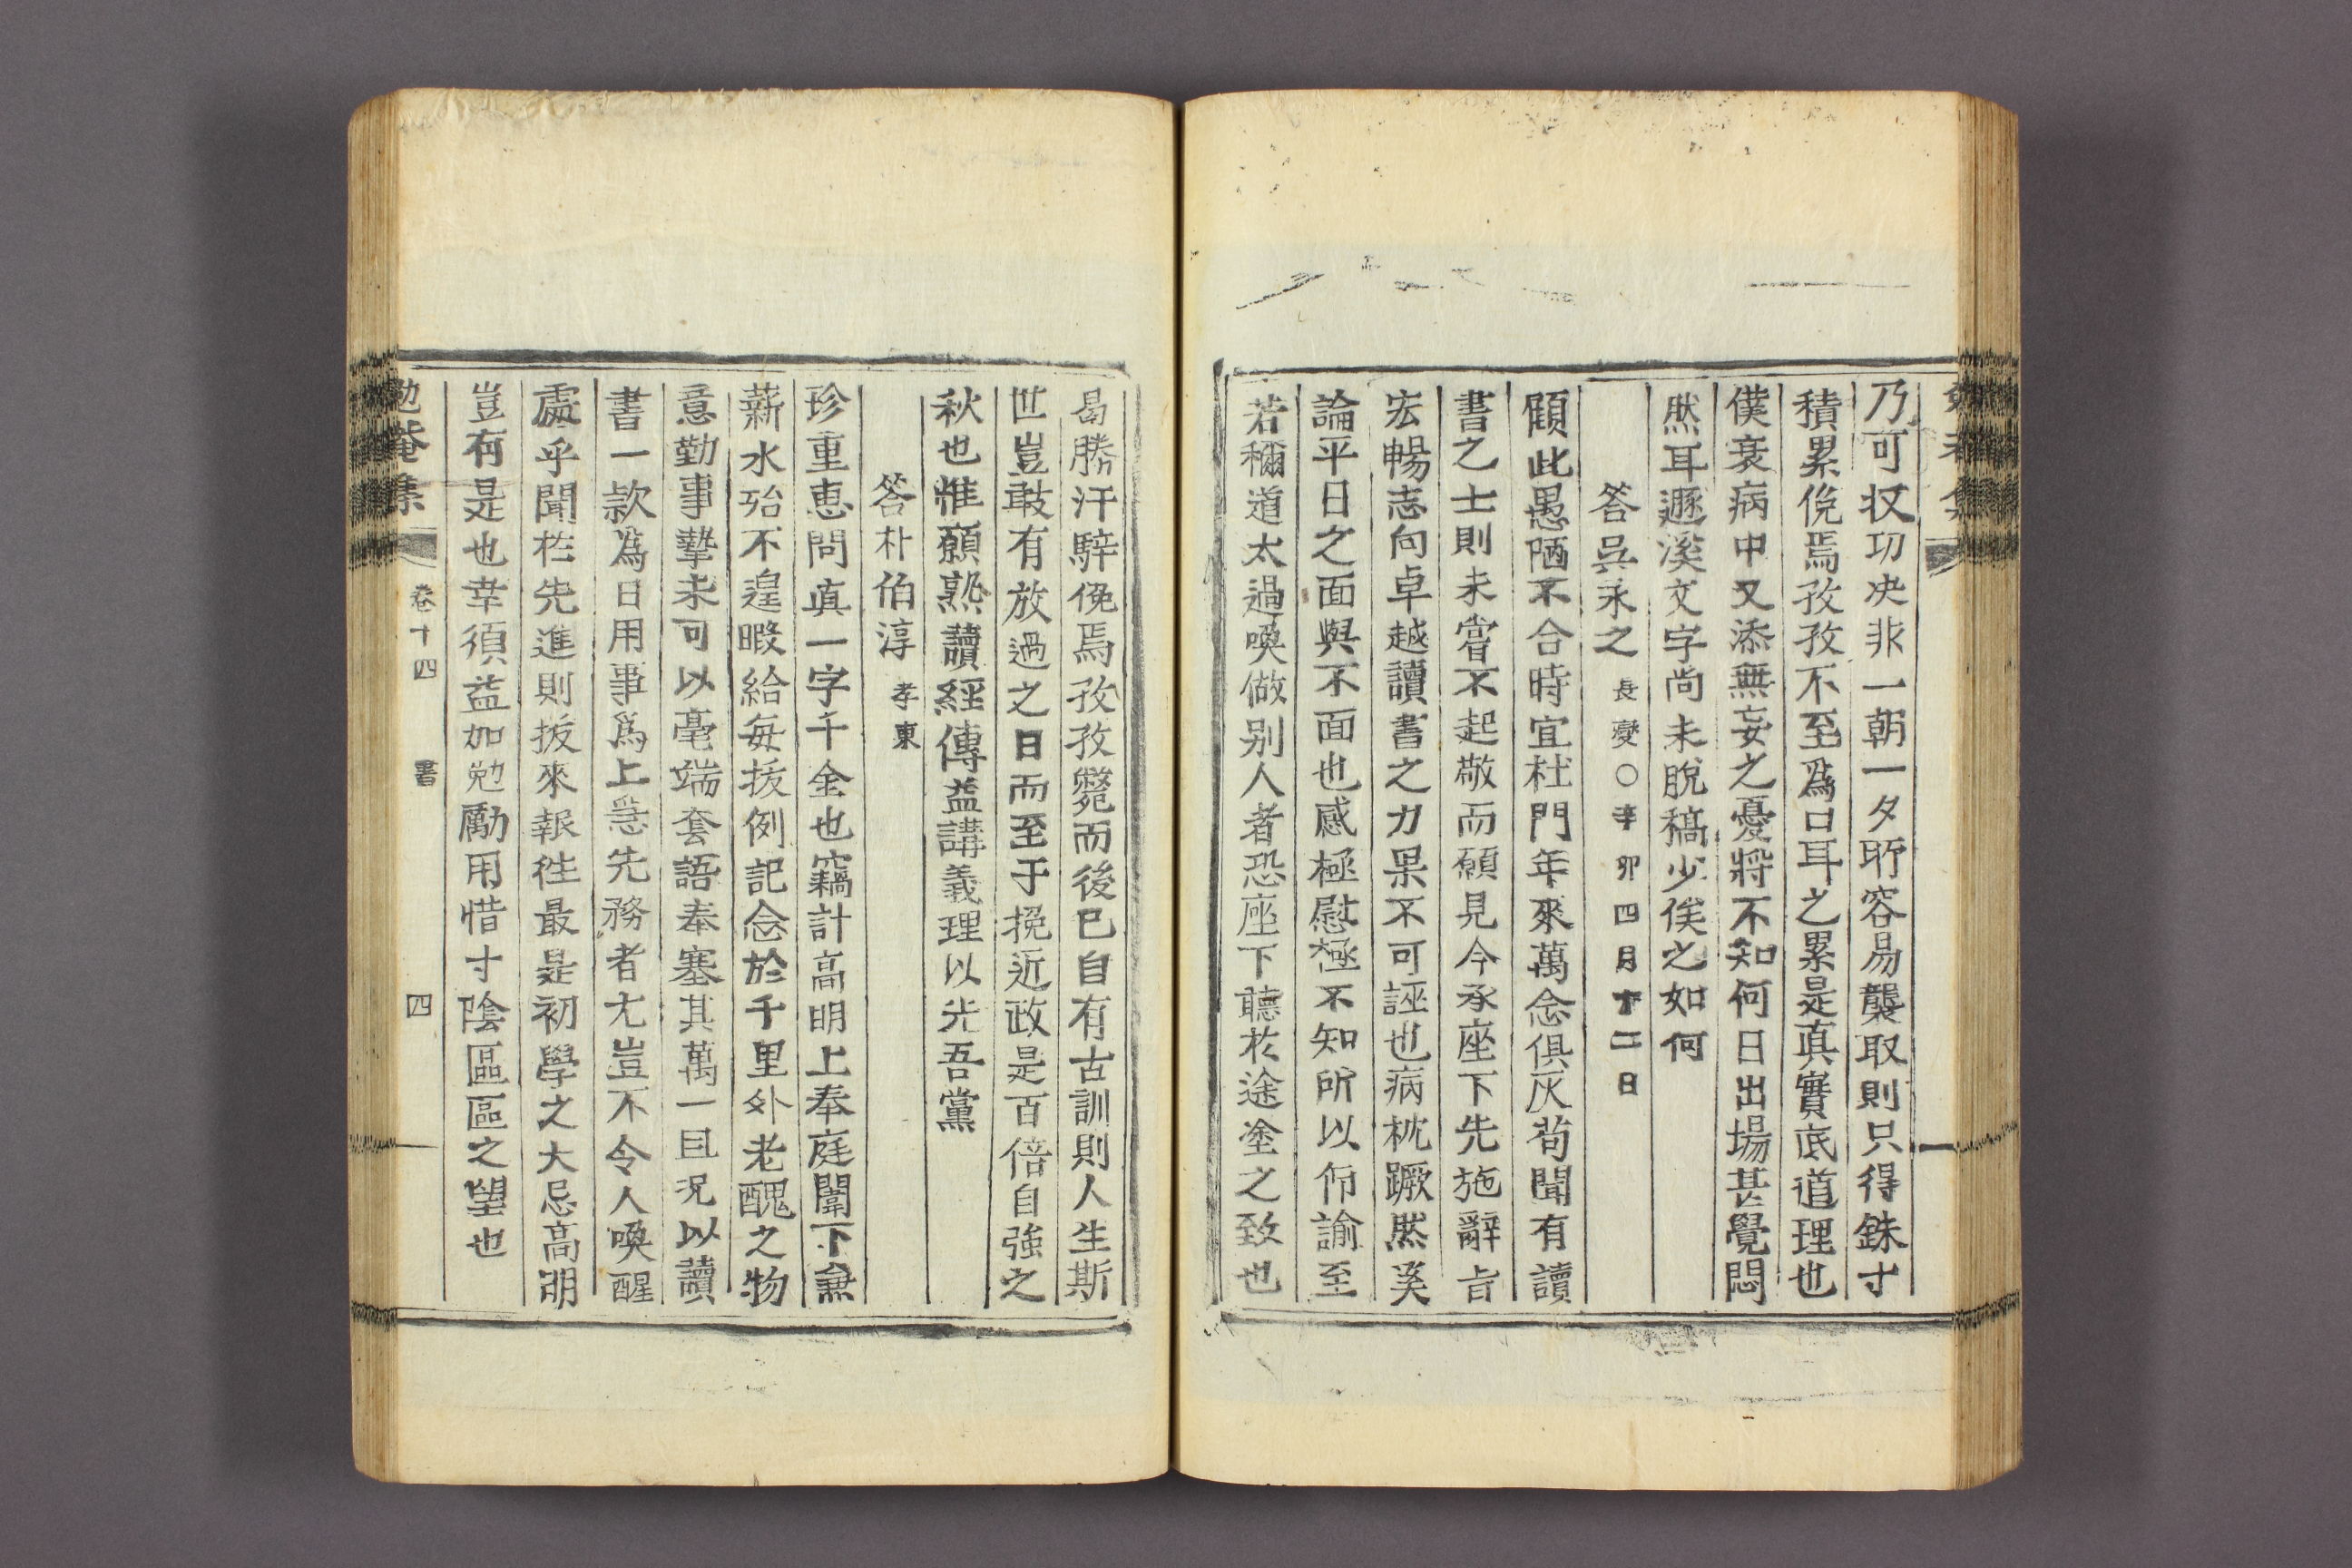 乃可收功决非一朝一夕所容易襲取則只得銖寸
積累俛焉孜孜不至爲口耳之累是真實底道理也
僕衰病中又添無妄之憂將不知何日出場甚覺悶
然耳遯溪文字尚未脫稿少俟之如何
答吳永之 長燮○辛卯四月十二日
顧此愚陋不合時宜杜門年來萬念俱灰苟聞有讀
書之士則未嘗不起敬而願見今承座下先施辭旨
宏暢志向卓越讀書之力果不可誣也病枕蹶然奚
論平日之面與不面也感極慰極不知所以俯諭至
若稱道太過喚做别人者恐座下聽於途塗之致也
曷勝汗騂俛焉孜孜斃而後已自有古訓則人生斯
世豈敢有放過之日而至于挽近政是百倍自強之
秋也惟願熟讀經傳益講義理以光吾黨
答朴伯淳 孝東
珍重惠問眞一字千金也竊計高明上奉庭闈下兼
薪水殆不遑暇給每拔例記念於千里外老醜之物
意勤事摯未可以毫端套語奉塞其萬一且况以讀
書一款爲日用事爲上急先務者尤豈不令人喚醒
處乎聞於先進則拔來報徃最是初學之大忌高明
豈有是也幸須益加勉勵用惜寸陰區區之望也
勉菴集 卷十四 書 四